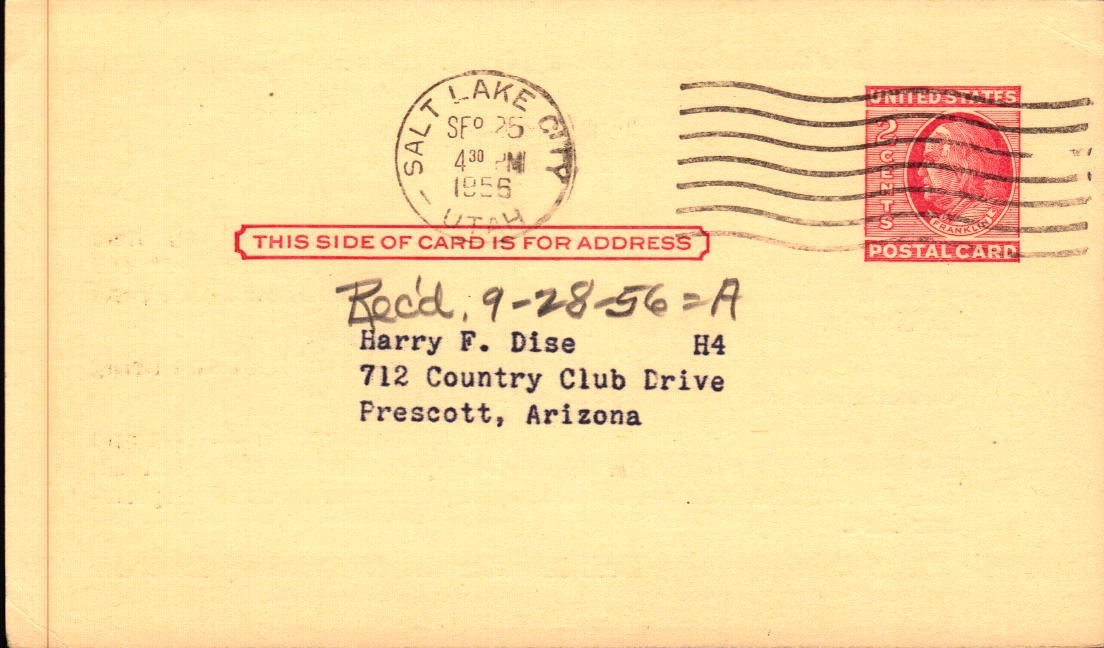 SALT LAKE CITY
SEP 25
4 30 PM
1956
UTAH
UNITED STATES
2 CENTS
FRANKLIN
POSTAL CARD
THIS SIDE OF CARD IS FOR ADDRESS
Rec'd. 9-28-56=A
Harry F. Dise H4
712 Country Club Drive
Prescott, Arizona